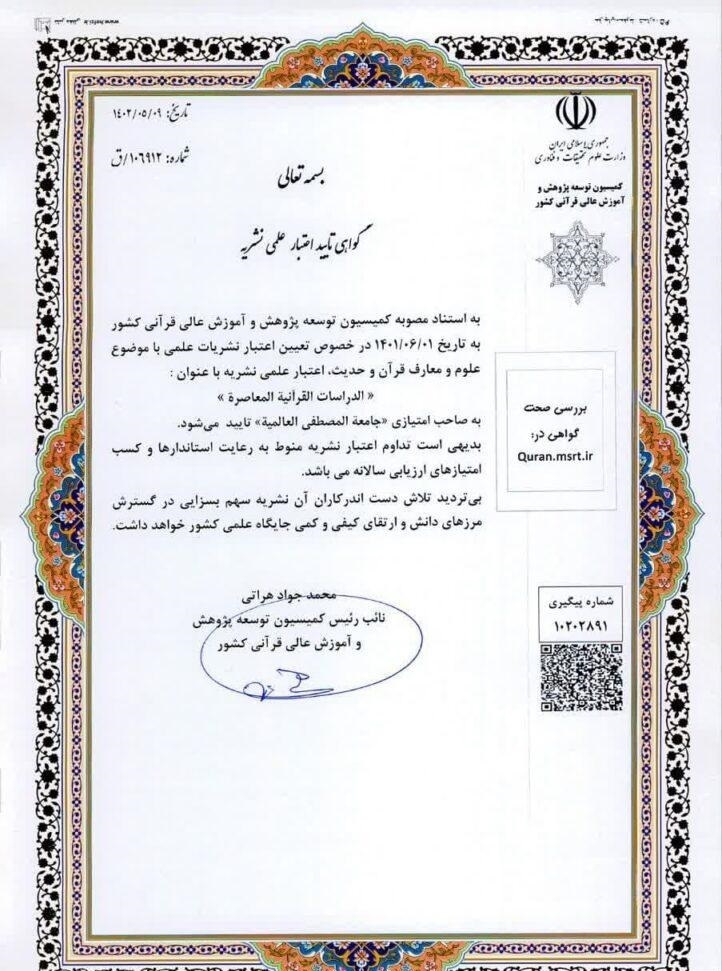 www.hafzi.ir
جمهوری اسلامی ایران
وزارت علوم تحقیقات و فناوری
کمیسیون توسعه پژوهش و
آموزش عالی قرآنی کشور
تاریخ: ۱۴۰۲/۰۵/۰۹
شماره: ۱۰۶۹۱۲/ق
بسمه تعالی
گواهی تایید اعتبار علمی نشریه
به استناد مصوبه کمیسیون توسعه پژوهش و آموزش عالی قرآنی کشور
به تاریخ ۱۴۰۱/۰۶/۰۱ در خصوص تعیین اعتبار نشریات علمی با موضوع
علوم و معارف قرآن و حدیث، اعتبار علمی نشریه با عنوان :
« الدراسات القرآنیة المعاصرة »
به صاحب امتیازی «جامعة المصطفی العالمیة» تایید می‌شود.
بدیهی است تداوم اعتبار نشریه منوط به رعایت استاندارها و کسب
امتیازهای ارزیابی سالانه می باشد.
بی‌تردید تلاش دست اندرکاران آن نشریه سهم بسزایی در گسترش
مرزهای دانش و ارتقای کیفی و کمی جایگاه علمی کشور خواهد داشت.
بررسی صحت
گواهی در:
Quran.msrt.ir
محمد جواد هراتی
نائب رئیس کمیسیون توسعه پژوهش
و آموزش عالی قرآنی کشور
شماره پیگیری
۱۰۲۰۲۸۹۱